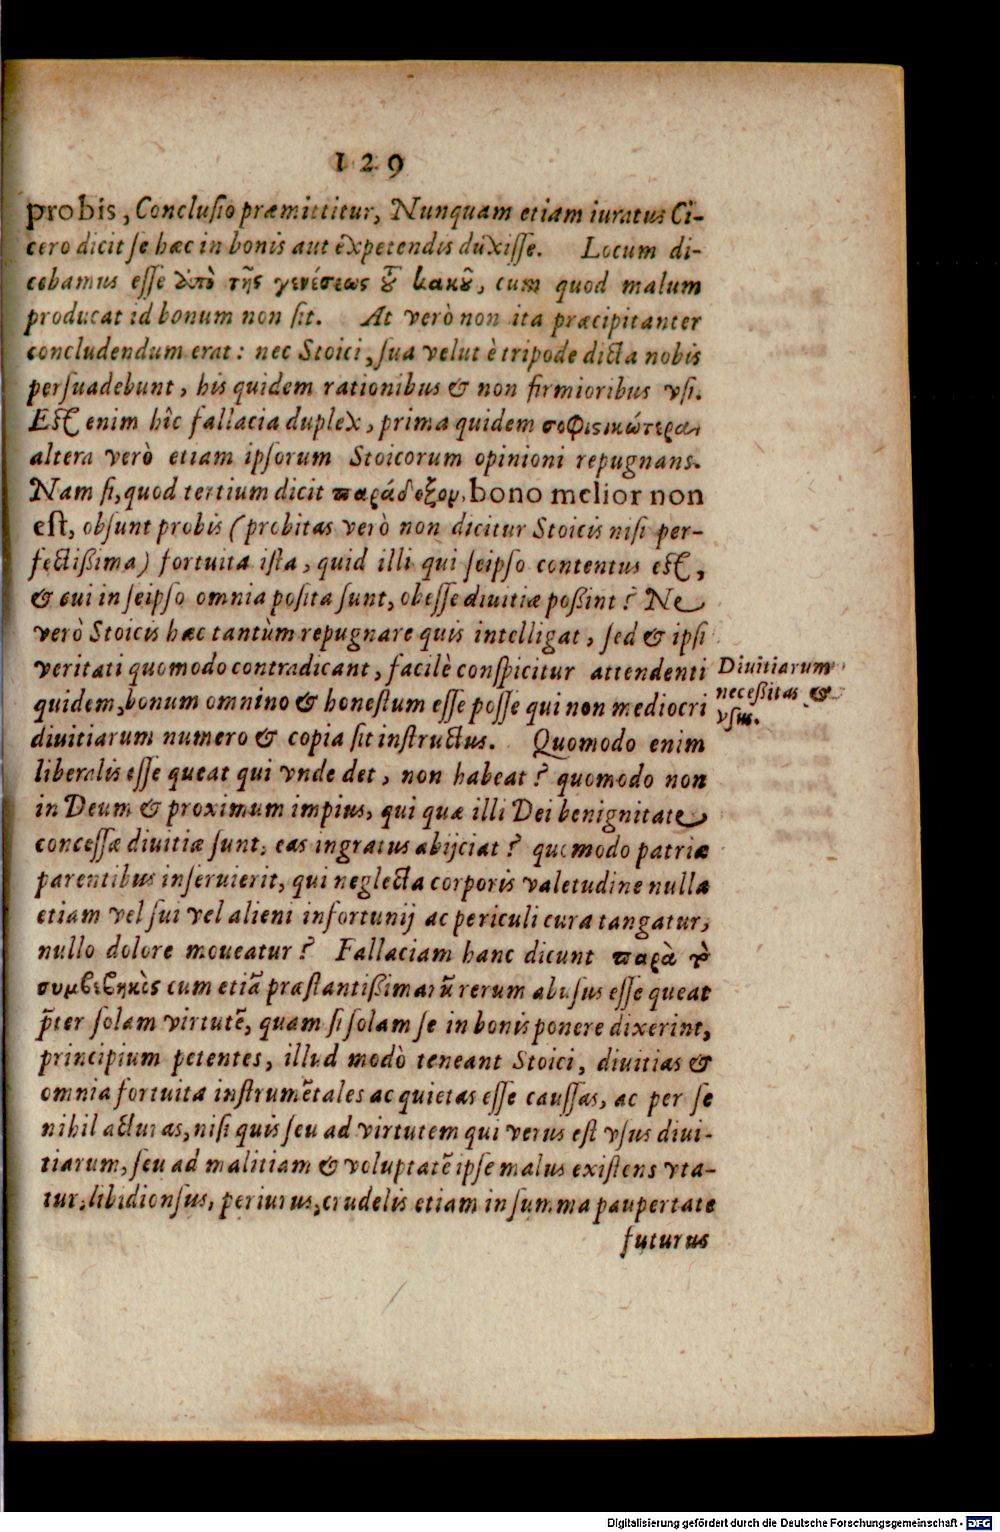 129
probis, Conclusio præmittitur, Nunquam etiam iuratus Ci-
cero dicit se hæc in bonis aut expetendis duxisse. Locum di-
cebamus esse ἀπὸ τῆς γενέσεως τοῦ κακοῦ, cum quod malum
producat id bonum non sit. At verò non ita præcipitanter
concludendum erat: nec Stoici, sua velut è tripode dicta nobis
persuadebunt, his quidem rationibus & non firmioribus vsi.
Est enim hîc fallacia duplex, prima quidem σοφιστικώτερα,
altera verò etiam ipsorum Stoicorum opinioni repugnans.
Nam si, quod tertium dicit παράδοξον, bono melior non
est, obsunt probis (probitas verò non dicitur Stoicis nisi per-
fectißima) fortuita ista, quid illi qui seipso contentus est,
& cui in seipso omnia posita sunt, obesse diuitiæ poßint? Ne
verò Stoicis hæc tantùm repugnare quis intelligat, sed & ipsi
veritati quomodo contradicant, facilè conspicitur attendenti
Diuitiarum
neceßitas &
vsus.
quidem, bonum omnino & honestum esse posse qui non mediocri
diuitiarum numero & copia sit instructus. Quomodo enim
liberalis esse queat qui vnde det, non habeat? quomodo non
in Deum & proximum impius, qui quæ illi Dei benignitate
concessæ diuitiæ sunt, eas ingratus abijciat? quomodo patriæ
parentibus inseruierit, qui neglecta corporis valetudine nulla
etiam vel sui vel alieni infortunij ac periculi cura tangatur,
nullo dolore moueatur? Fallaciam hanc dicunt παρὰ τὸ
συμβεβηκὸς cum etiã præstantißimarũ rerum abusus esse queat
p̃ter solam virtutẽ, quam si solam se in bonis ponere dixerint,
principium petentes, illud modò teneant Stoici, diuitias &
omnia fortuita instrumẽtales ac quietas esse caussas, ac per se
nihil acturas, nisi quis seu ad virtutem qui verus est vsus diui-
tiarum, seu ad malitiam & voluptatẽ ipse malus existens vta-
tur, libidionsus, periurus, crudelis etiam in summa paupertate
futurus
Digitalisierung gefördert durch die Deutsche Forschungsgemeinschaft - DFG